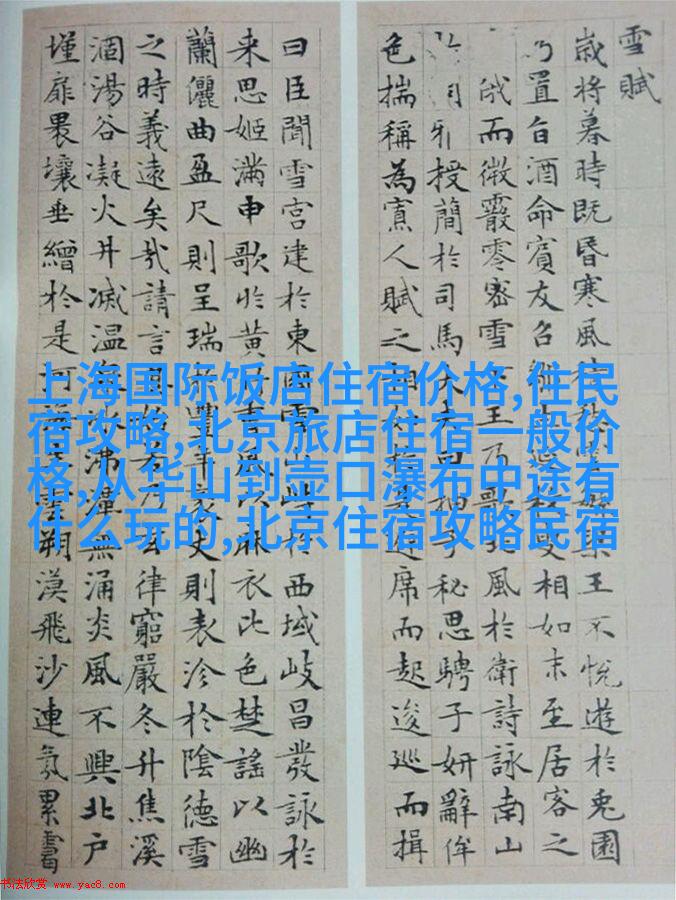 雪賦
歲將暮時既昏寒風 梁王不悅遊於兔園
乃置旨酒命賓友召 相如末至居客之
俄而微霰零密雪 王乃歌北風於衛詩詠南山
授簡於司馬 抽子秘思騁子妍辭侔
色揣稱為寡人賦之 避席而起逡巡而揖
曰臣聞雪宮建於東 西域岐昌發詠於
来思姬滿申歌於黃 麻衣比色楚謠以幽
蘭儷曲盈尺則呈瑞 袤丈則表沴於陰德雪
之時義遠矣哉請言 律窮嚴冬升焦溪
涸湯谷凝火井滅温 沸潭無涌炎風不興北户
墐扉 壤垂繒於是河 朔漠飛沙連氛累靄
上海国际饭店住宿价格,住民
宿攻略,北京旅店住宿一般价
格,从华山到壶口瀑布中途有
什么玩的,北京住宿攻略民宿
书法欣赏 www.yac8.com